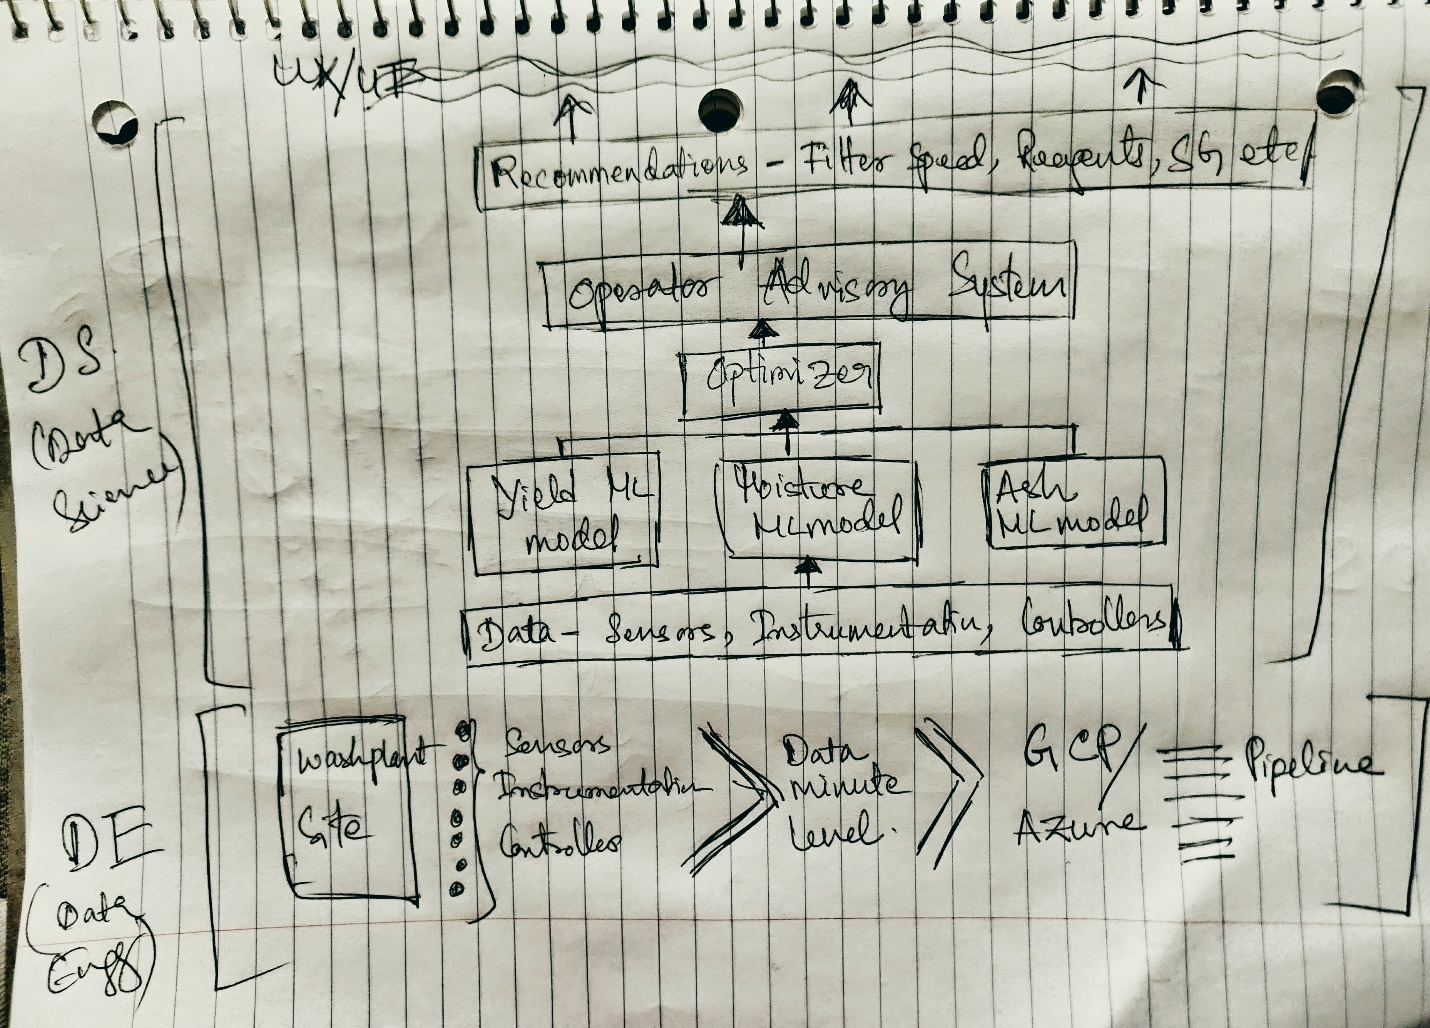 UX/UI
Recommendations - Filter Speed, Reagents, SG etc
Operator Advisory System
Optimizer
DS
(Data
Science)
Yield ML
model
Moisture
ML model
Ash
ML model
Data - Sensors, Instrumentatin, Controllers
DE
(Data
Engg)
Washplant
Site
Sensors
Instrumentation
Controlles
Data
minute
level.
GCP/
AZure
Pipeline